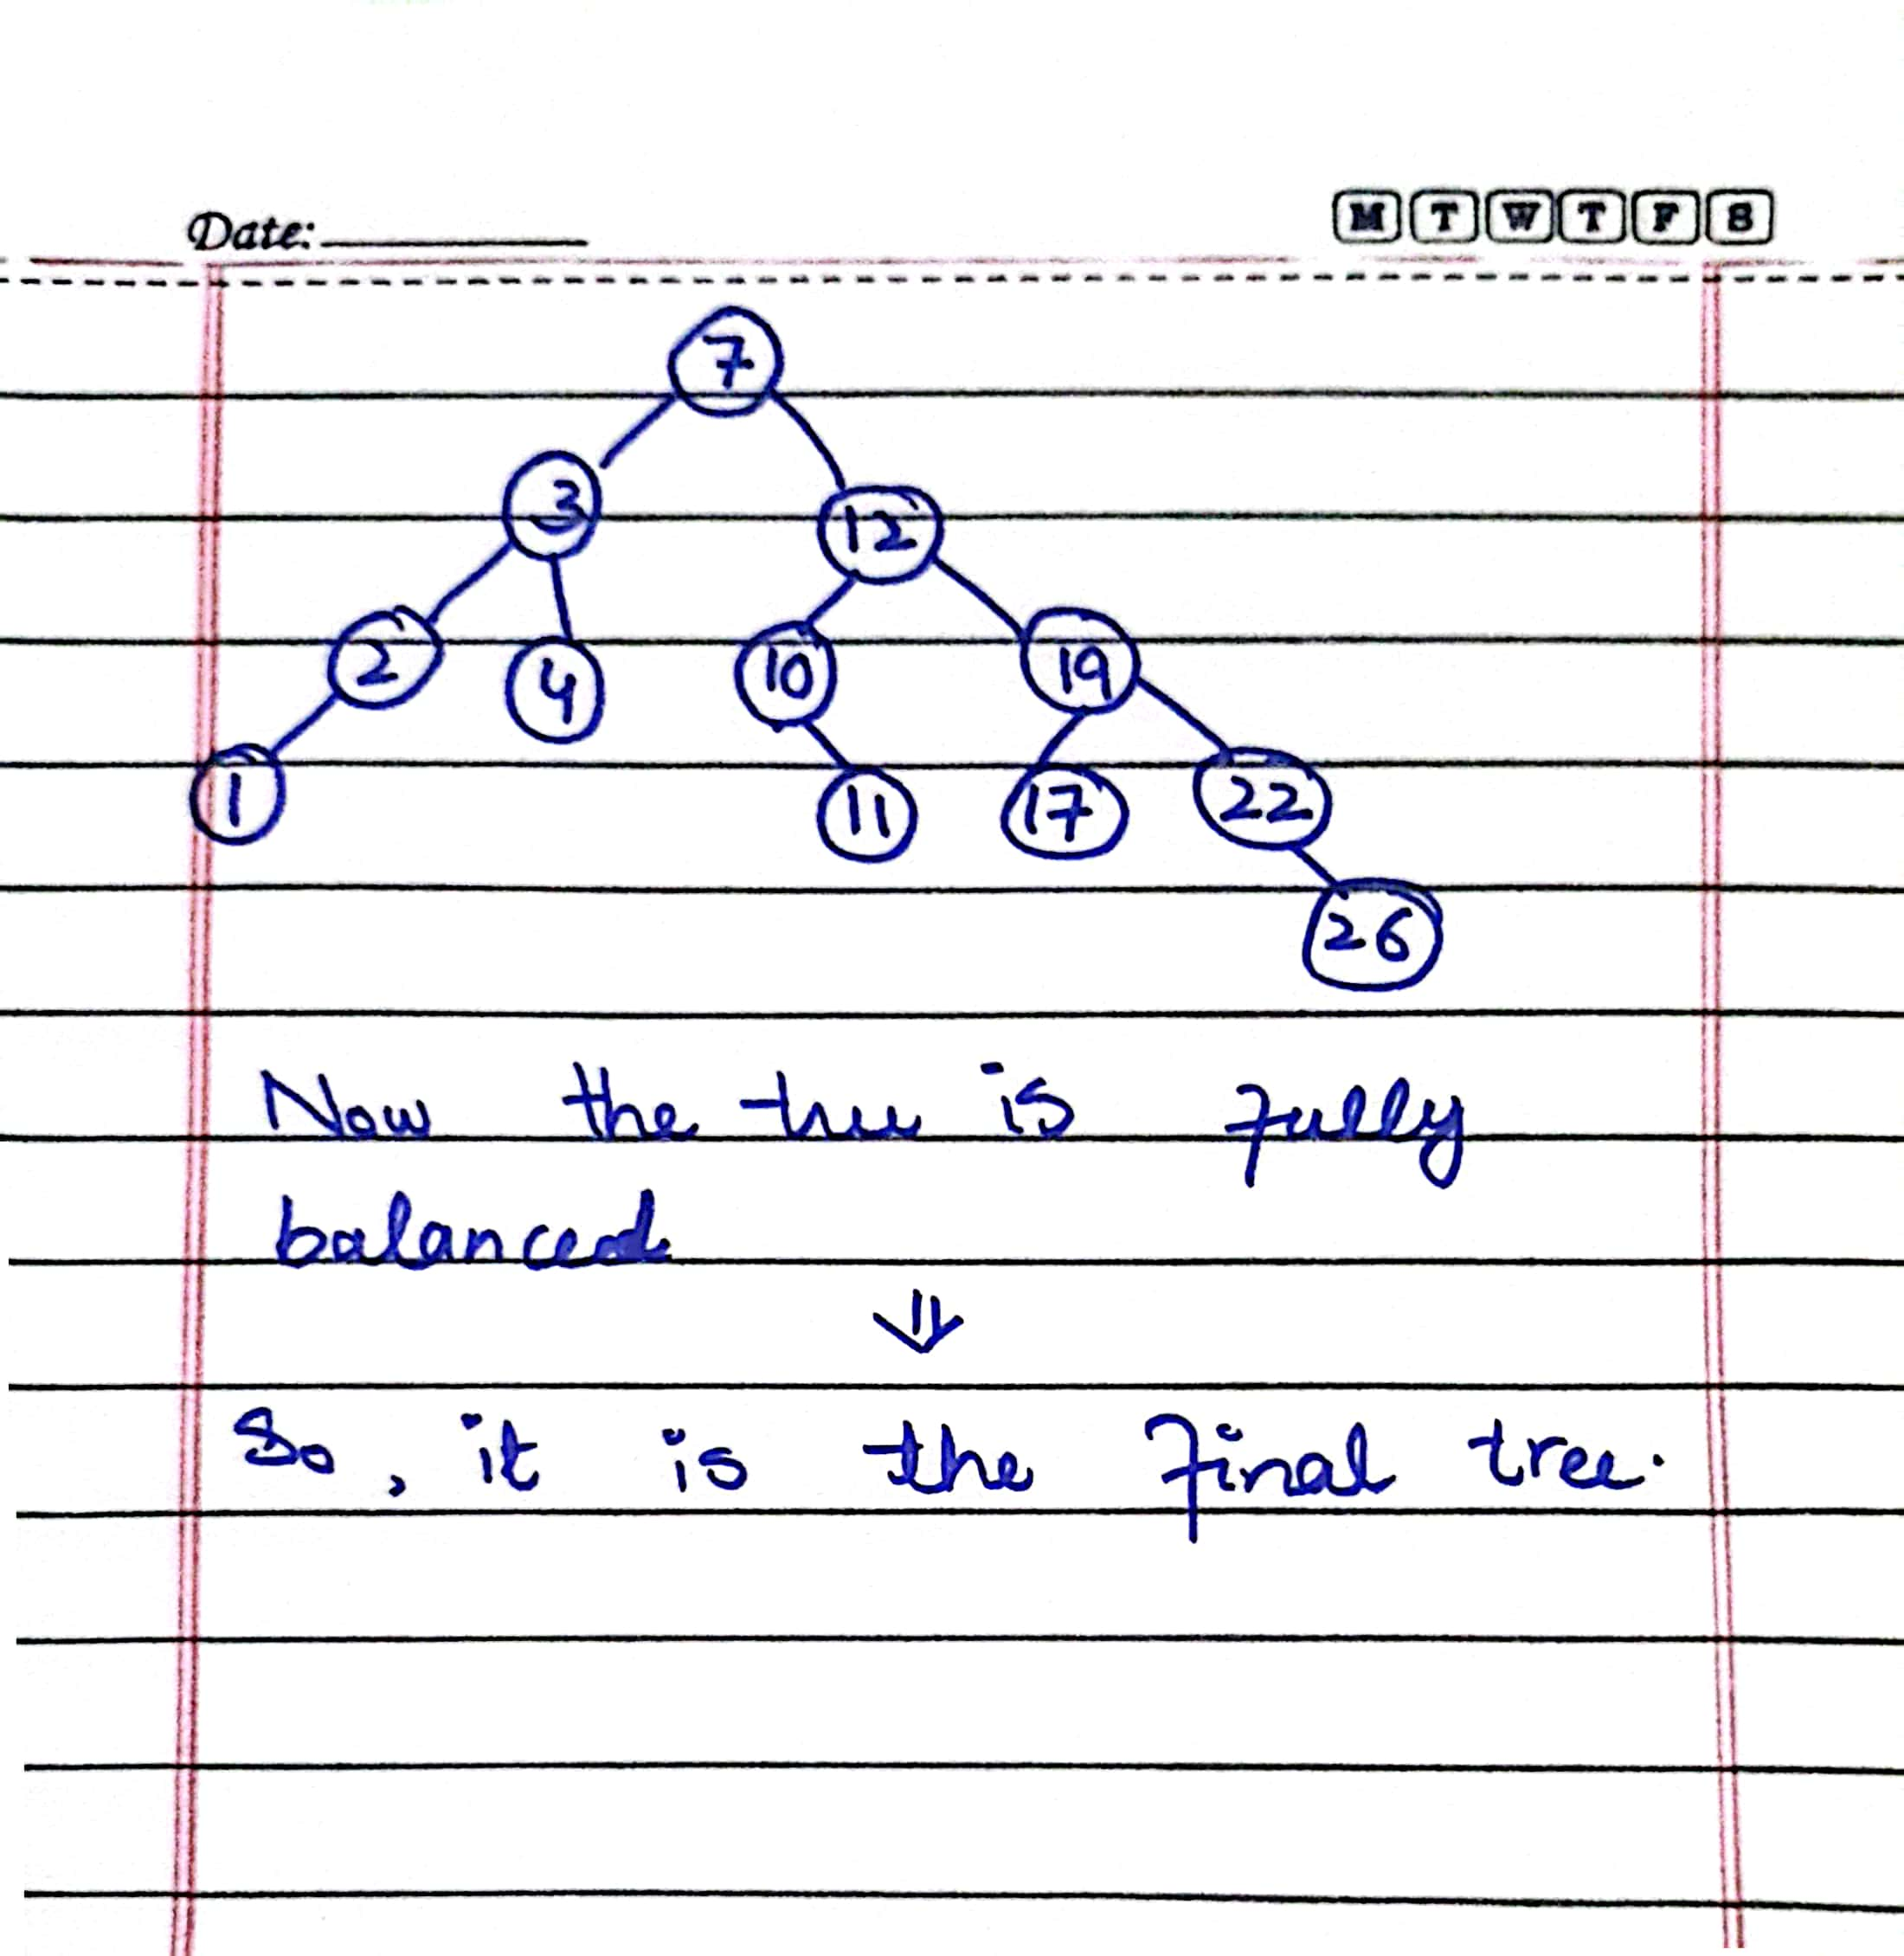 Date:
M T W T F S
7
3 12
2 4 10 19
1 11 17 22
26
Now the tree is fully
balanced
⇓
So, it is the final tree.